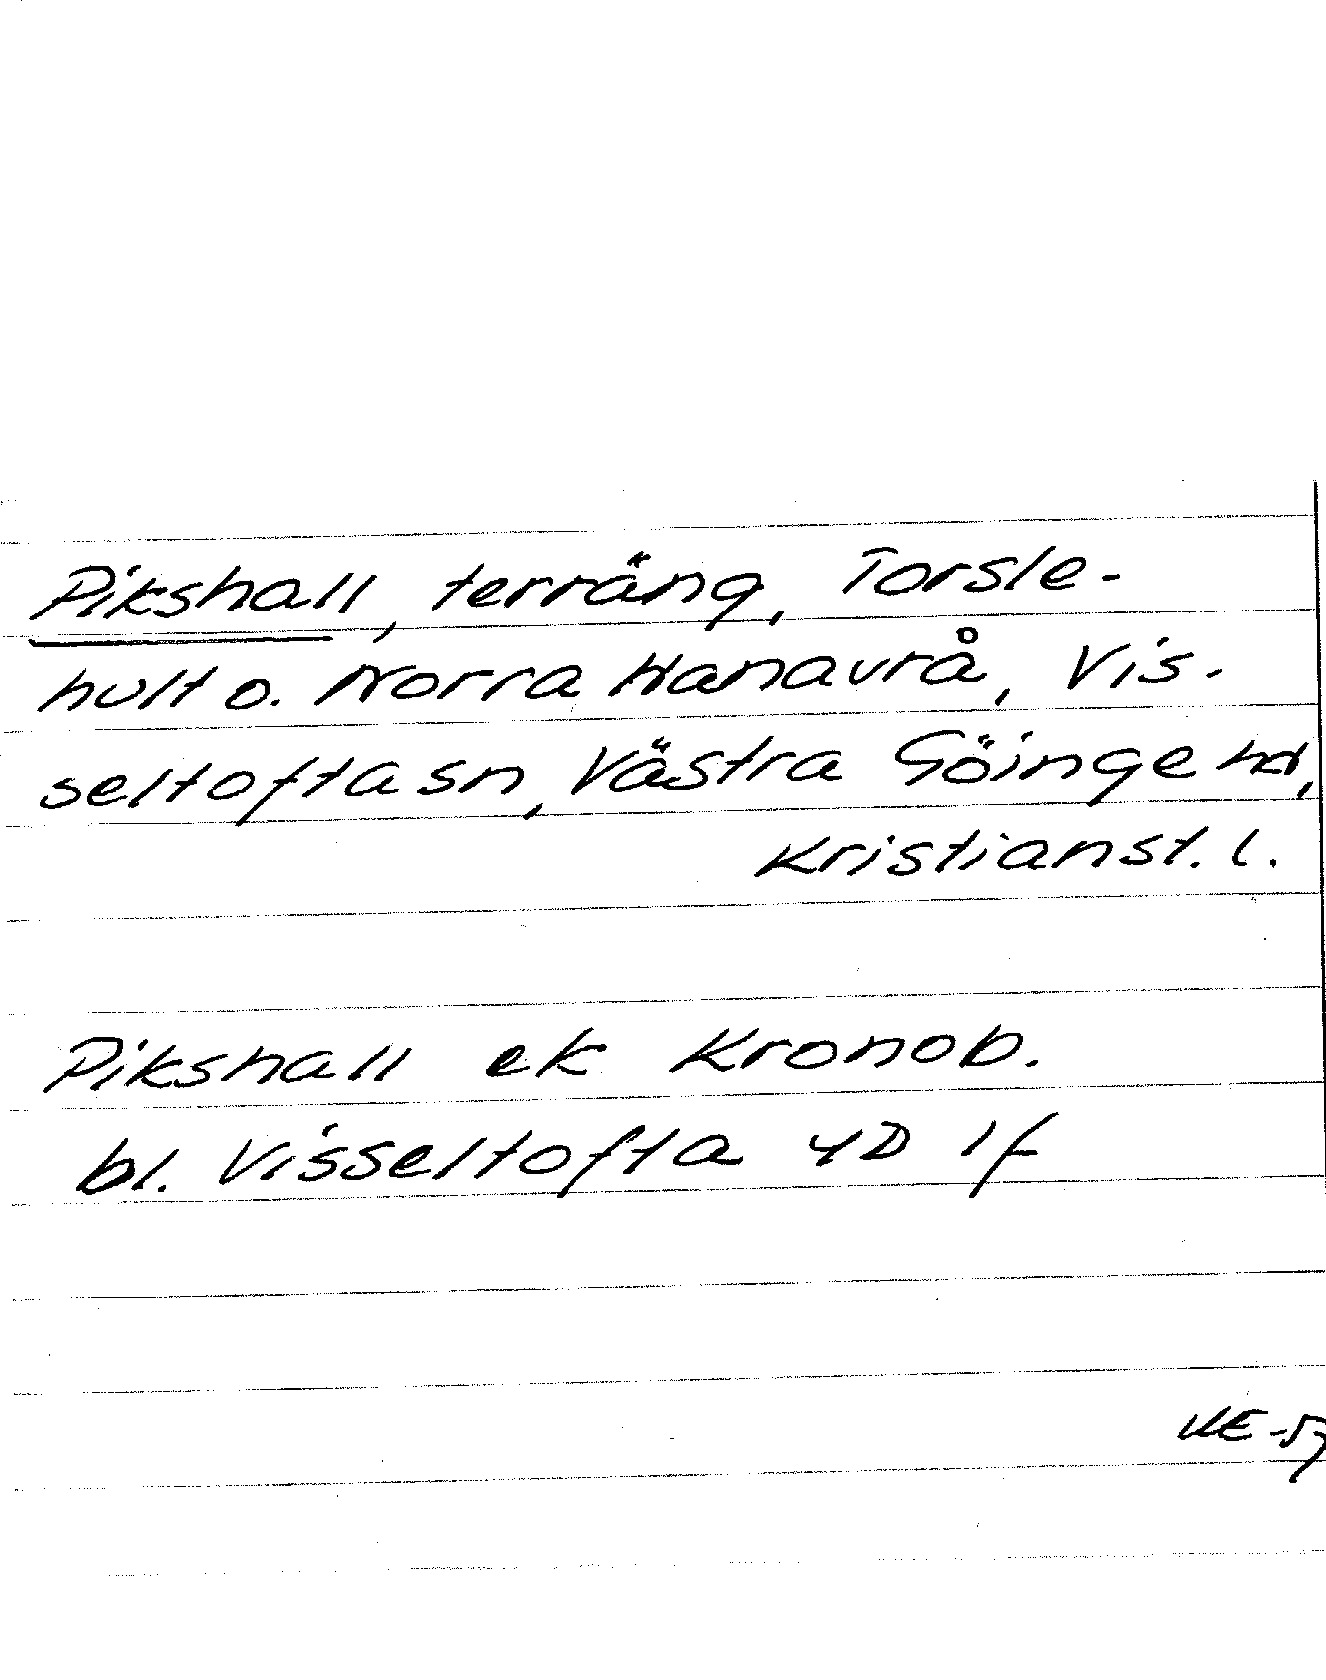 Pikshall, terräng, Torsle-
hult o. Norra Hanavrå, Vis-
seltofta sn, Västra Göinge hd,
Kristianst. l.
Pikshall ek Kronob.
bl. Visseltofta 4D 1f
KE -57